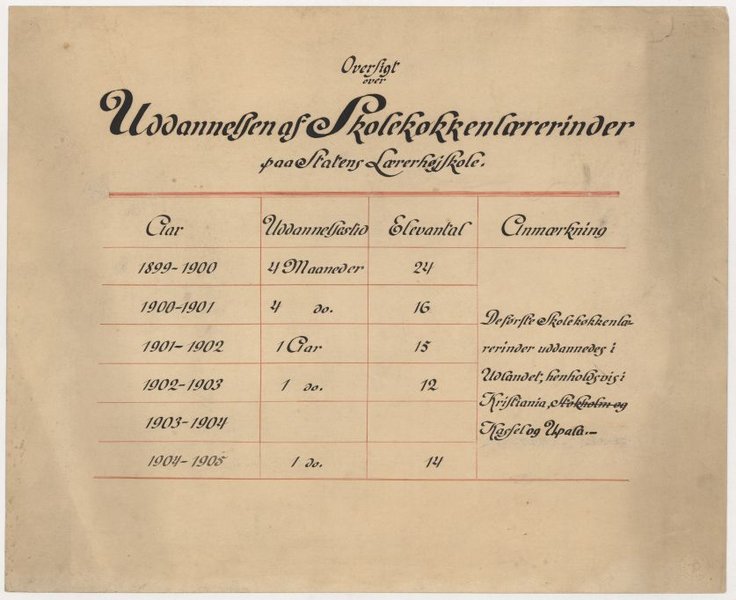 Oversigt
over
Uddannelsen af Skolekøkkenlærerinder
paa Statens Lærerhøjskole.
Aar Uddannelsestid Elevantal Anmærkning
1899-1900 4 Maaneder 24
1900-1901 4 do. 16
1901-1902 1 Aar 15
1902-1903 1 do. 12
1903-1904
1904-1905 1 do. 14
De første Skolekøkkenlæ-
rerinder uddannedes i
Udlandet, henholdsvis i
Kristiania, Stokholm og
Kassel og Upala.-